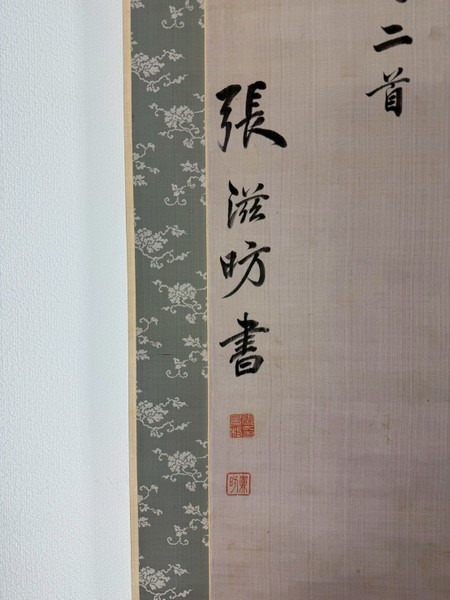 二首
張滋昉書